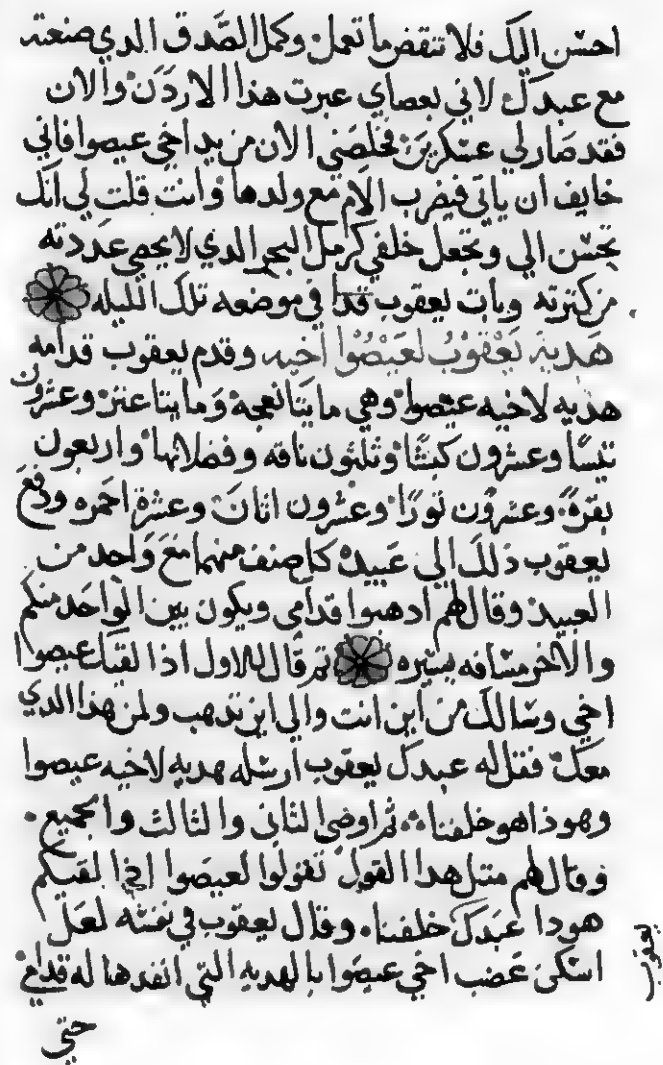 احسن اليك فلا تنقض ما تعمل وكمل الصدق الدي صنعته
مع عبدك لاني بعصاي عبرت هذا الاردن والان
فقد صار لي عسكرين فخلصني الان من يد اخي عيصوا فاني
خايف ان ياتي فيضرب الام مع ولدها وانت قلت لي انك
تحسن الي وتجعل خلفي كرمل البحر الدي لا يحصي عددته
من كترته وبات يعقوب قدا في موضعه تلك الليله
هدية يعقوب لعيصوا اخيه وقدم يعقوب قدامه
هديه لاخيه عيصوا وهي مايتا نعجة ومايتا عنز وعشرون
تيسا وعشرون كبشا وثلثون ناقه وفصلانها واربعون
بقرة وعشرون تورا وعشرون اتان وعشرة احمره ودفع
يعقوب ذلك الي عبيده كل صنف منهما مع واحد من
العبيد وقال لهم ادهبوا قدامي ويكون بين الواحد منكم
والاخر مسافه يسيره تم قال للاول ادا لقيك عيصوا
اخي وسالك من اين انت والي اين تدهب ولمن هدا الدي
معك فقل له عبدك يعقوب ارسله هديه لاخيه عيصوا
وهوذا هو خلفنا ثم اوصي الثاني والثالث والجميع
وقال لهم متل هدا القول تقولوا لعيصوا اذا لقيكم
هودا عبدك خلفنا وقال يعقوب في نفسه لعل
اسكن غضب اخي عيصوا بالهديه التي انفدها له قدامي
يعقوب
حتي